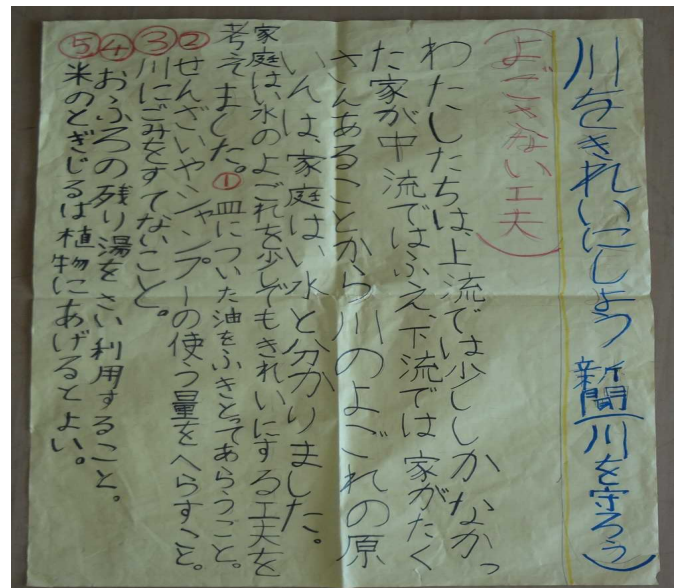 川をきれいにしよう 新聞(川を守ろう)
(よごさない工夫)
わたしたちは、上流では少ししかなかっ
た家が中流ではふえ、下流では家がたく
さんあることから川のよごれの原
いんは、家庭はい水と分かりました。
家庭はい水のよごれを少しでもきれいにする工夫を
考えました。①皿についた油をふきとってあらうこと。
②せんざいやシャンプーの使う量をへらすこと。
③川にごみをすてないこと。
④おふろの残り湯をさい利用すること。
⑤米のとぎじるは植物にあげるとよい。